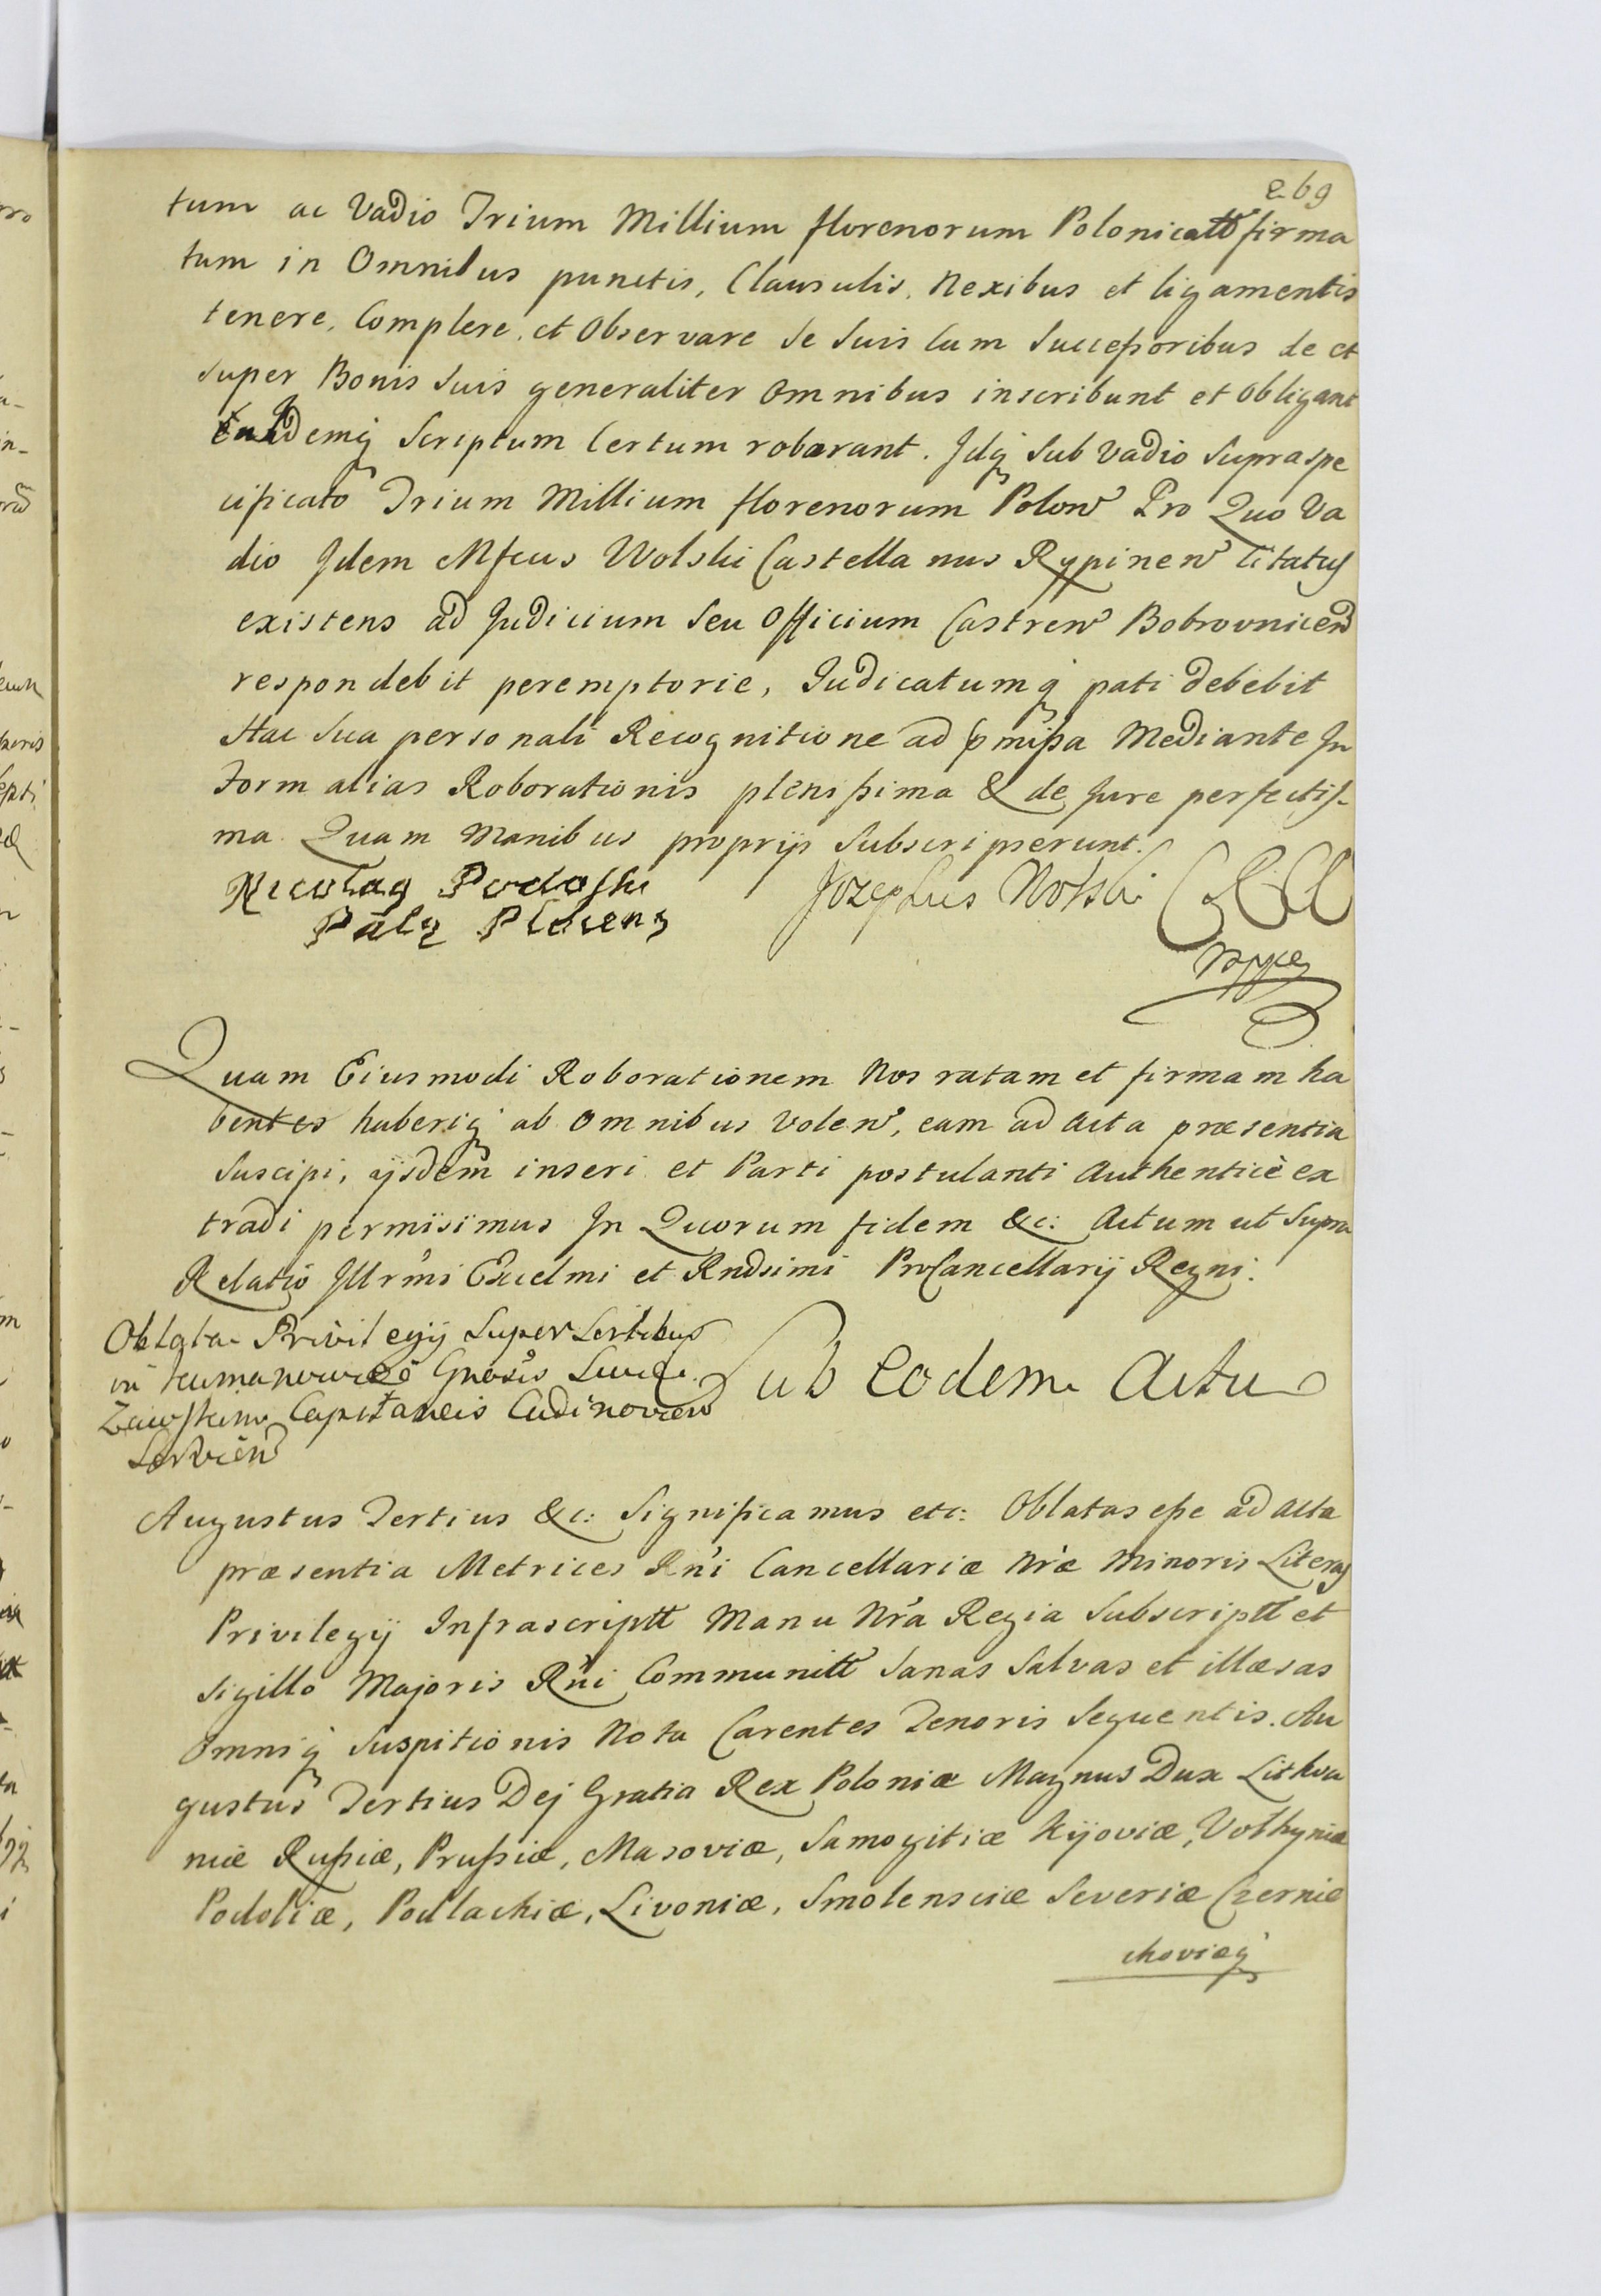 269
tum ac Vadio Trium Millium florenorum Polonicatt firma
tum in Omnibus punctis, Clausulis, Nexibus et ligamentis
tenere, Complere, et Observare se suis cum Successoribus de et
super Bonis suis generaliter Omnibus inscribunt et obligant
Scriptum Certum roborant. Idq sub Vadio supraspe
cificato Trium Millium florenorum Polon Pro Quo Va
dio Idem Mfcus Wolski Castellanus Rypinen Citatus
existens ad Judicium seu Officium Castren Bobrovnicen
respondebit peremptorie, Judicatumq pati debebit
Hac sua personali Recognitione ad pmissa Mediante In
Form alias Roborationis plenissima & de Jure perfectiss-
ma Quam Manibus proprijs subscripserunt.
Nicolag Podoski Jozephus Wolski
Palq Plocens
Quam Eiusmodi Roborationem Nos ratam et firmam ha
bentes haberiq ab omnibus Volen, eam ad Acta præsentia
suscipi, ijsdem inseri et Parti postulanti Authenticè ex
tradi permisimus In Quorum fidem &c: Actum ut supra
Relatio Illrmi Excelmi et Rndsimi ProCancellarij Regni.
Oblata Privilegij super
in
Capitaneis
Sub Eodem Actu
Augustus Tertius &c: Significamus etc: Oblatas esse ad Acta
præsentia Metrices Rni Cancellariæ Nræ Minoris Literas
Privilegij Infrascriptt Manu Nra Regia Subscriptt et
sigillo Majoris Rni Communitt sanas salvas et illæsas
omniq suspitionis Nota Carentes Tenoris sequentis. Au
gustus Tertius Dej Gratia Rex Poloniæ Magnus Dux Lithva
niæ Russiæ, Prussiæ, Masoviæ, Samogitiæ Kijoviæ, Volhyniæ
Podoliæ, Podlachiæ, Livoniæ, Smolensciæ Severiæ Czernie
choviæq